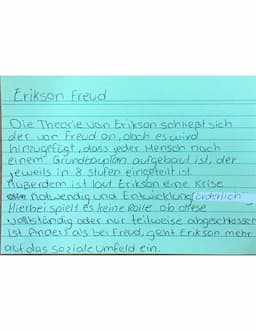 Erikson Freud
Die Theorie von Erikson schließt sich
der von Freud an, doch es wird
hinzugefügt, dass jeder Mensch nach
einem Grundbauplan aufgebaut ist, der
jeweils in 8 Stufen eingeteilt ist.
Außerdem ist laut Erikson eine Krise
notwendig und Entwicklungförderlich
Hierbei spielt es keine Rolle ob diese
vollständig oder nur teilweise abgeschlossen
ist. Anders als bei Freud, geht Erikson mehr
auf das soziale Umfeld ein.